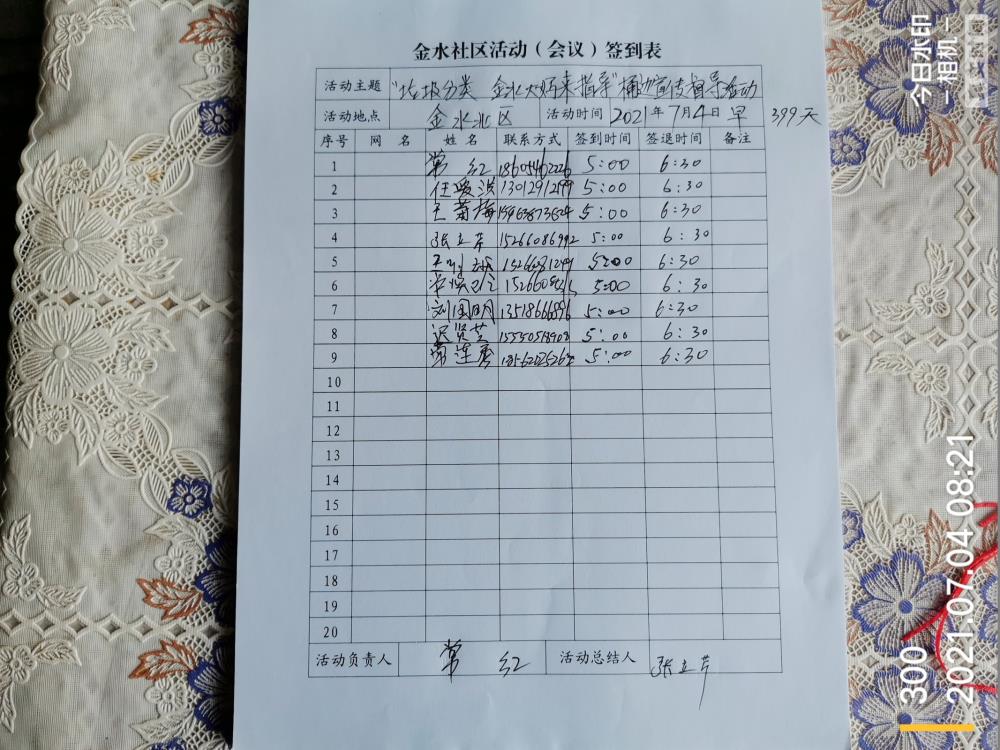 金水社区活动（会议）签到表
活动主题 "垃圾分类 金水大妈来指导"桶边宣传督导活动
活动地点 金水北区 活动时间 2021年7月4日早 399天
序号 网 名 姓 名 联系方式 签到时间 签退时间 备注
1 常 红 18605462226 5:00 6:30
2 5:00 6:30
3 王菊梅 5:00 6:30
4 张立芹 15266086992 5:00 6:30
5 5:00 6:30
6 5:00 6:30
7 刘国明 13518666896 5:00 6:30
8 迟贤芝 5:00 6:30
9 常连秀 5:00 6:30
10
11
12
13
14
15
16
17
18
19
20
活动负责人 常 红 活动总结人 张立芹
今日水印
-相机-
300
2021.07.04 08:21